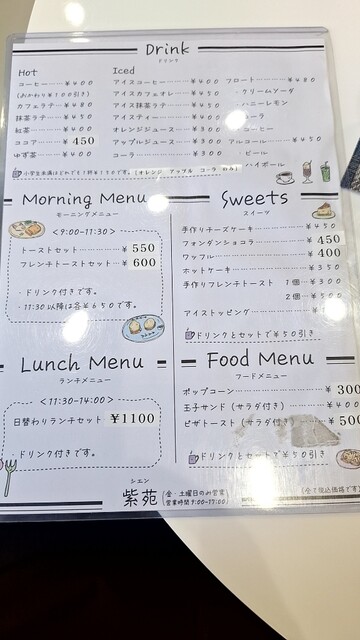 Drink
ドリンク
Hot
コーヒー ¥400
(おかわり¥100引き)
カフェラテ ¥480
抹茶ラテ ¥450
紅茶 ¥400
ココア ¥450
ゆず茶 ¥400
Iced
アイスコーヒー ¥400
アイスカフェオレ ¥450
アイス抹茶ラテ ¥450
アイスティー ¥400
オレンジジュース ¥300
アップルジュース ¥300
コーラ ¥300
フロート ¥480
・クリームソーダ
・ハニーレモン
コーヒー
アルコール ¥450
・ビール
ハイボール
小学生未満はどれでも1杯¥150です。(オレンジ アップル コーラ のみ)
Morning Menu
モーニングメニュー
<9:00-11:30>
トーストセット ¥550
フレンチトーストセット ¥600
・ドリンク付きです。
・11:30以降は各¥650です。
Sweets
スイーツ
手作りチーズケーキ ¥450
フォンダンショコラ ¥450
ワッフル ¥400
ホットケーキ ¥350
手作りフレンチトースト 1個 ¥300
2個
アイストッピング
ドリンクとセットで¥50引き
Lunch Menu
ランチメニュー
<11:30-14:00>
日替わりランチセット ¥1100
・ドリンク付きです。
Food Menu
フードメニュー
ポップコーン ¥300
玉子サンド(サラダ付き) ¥400
ピザトースト(サラダ付き) ¥500
ドリンクとセットで¥50引き
シエン
紫苑
(金・土曜日のみ営業)
(営業時間9:00-15:00)
(全て税込価格です)